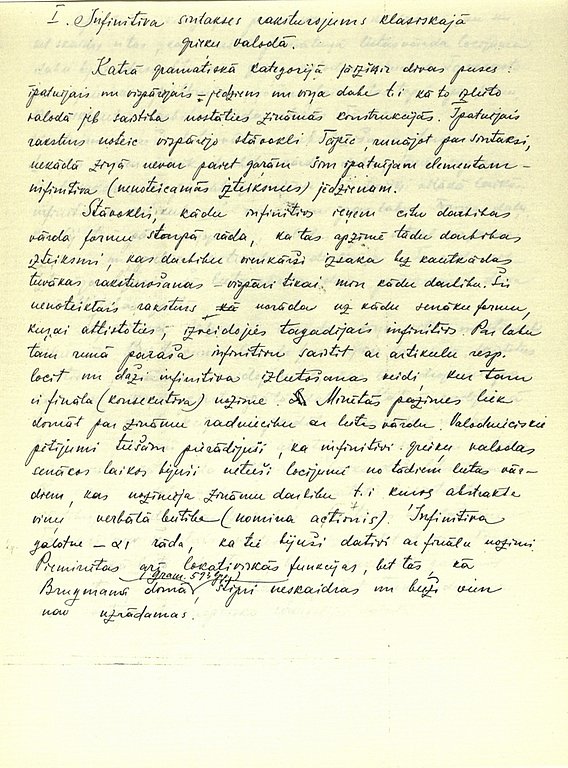 I. Infinitīva sintakses raksturojums klasiskajā
grieķu valodā.
Katrā gramatiskā kategorijā jāizšķir divas puses:
īpatnējais un vispārējais – jēdziens un viņa daba t.i. kā to lieto
valodā jeb saistība nostāties zināmās konstrukcijās. Īpatnējais
raksturs noteic vispārējo stāvokli. Tāpēc, runājot par sintaksi,
nekādā ziņā nevar paiet garām šim īpatnējam elementam –
infinitīva (nenoteicamās izteiksmes) jēdzienam.
Stāvoklis, kādu infinitīvs ieņem citu darbības
vārda formu starpā rāda, ka tas apzīmē tādu darbības
izteiksmi, kas darbību vienkārši izsaka bez kautkādas
tuvākas raksturošanas – vispāri tikai min kādu darbību. Šis
nenoteiktais raksturs norāda uz kādu senāku formu,
kuŗai attīstoties, izveidojies tagadējais infinitīvs. Par labu
tam runā paraša infinitīvu saistīt ar artikulu resp.
locīt un daži infinitīva izlietošanas veidi, kur tam
ir fināla (konsekutīva) nozīme. Minētās pazīmes liek
domāt par zināmu radniecību ar lietas vārdu. Valodnieciskie
pētījumi tiešām pierādījuši, ka infinitīvi grieķu valodas
senākos laikos bijuši neteši locījumi no tādiem lietas vār-
diem, kas nozīmēja zināmu darbību t.i. kuŗos abstrakta
vienu verbālā būtība (nomina actionis). Infinitīva
galotne – αι rāda, ka tie bijuši dativi ar finālu nozīmi.
Pieminētas arī lokatīviskās funkcijas, bet tās, kā
(gram. 513 lpp.)
Brugmans domā, stipri neskaidras un bieži vien
nav uzrādamas.